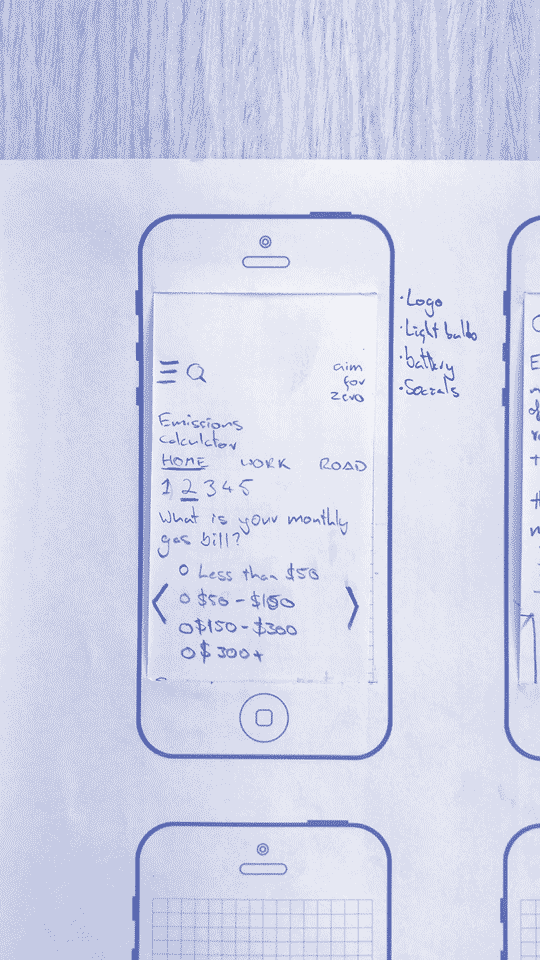 aim
for
zero
Emissions
calculator
HOME WORK ROAD
1 2 3 4 5
What is your monthly
gas bill?
Less than $50
$50 - $150
$150 - $300
$300+
· Logo
· Light bulbs
· battery
· Socials